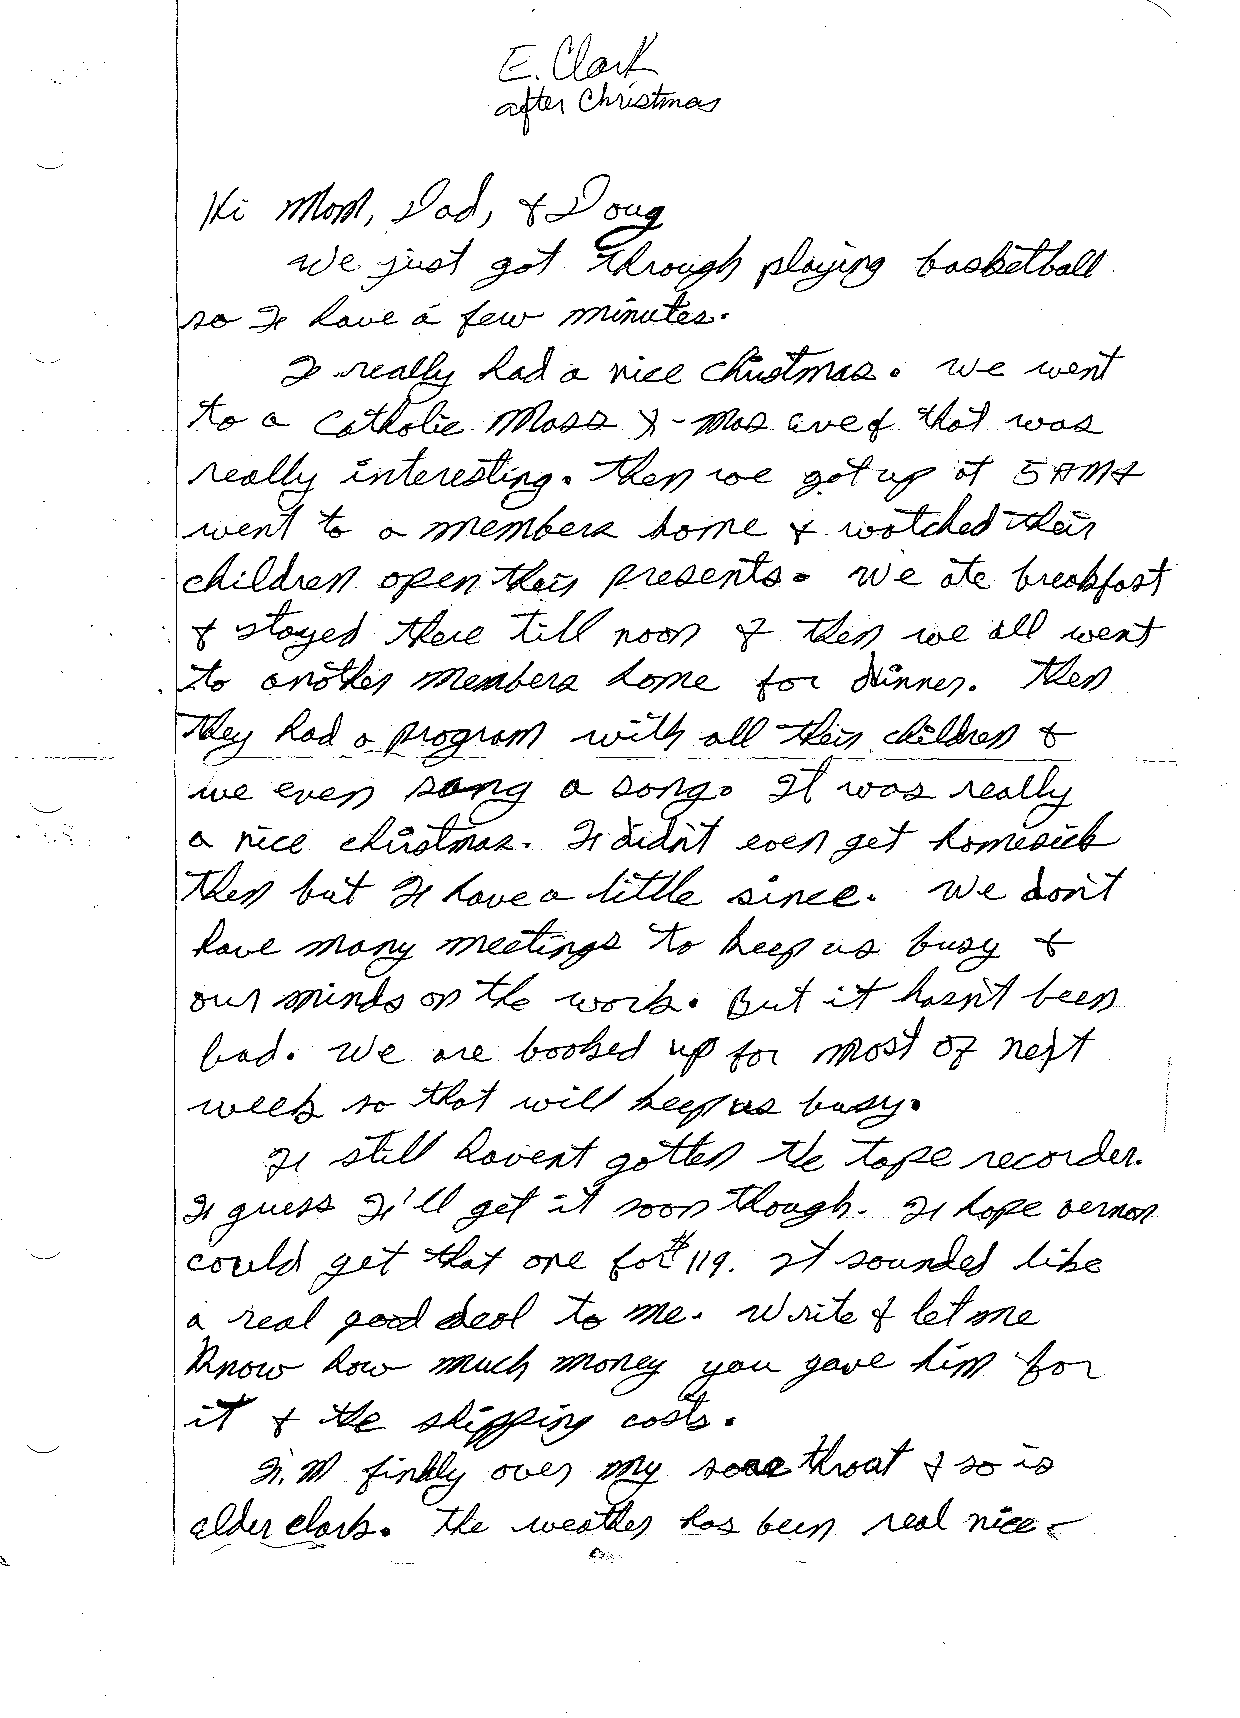 E. Clark
after Christmas
Hi Mom, Dad, & Doug
We just got through playing basketball
so I have a few minutes.
I really had a nice christmas. We went
to a Catholic Mass X-mas eve & that was
really interesting. Then we got up at 5 AM &
went to a members home & watched their
children open their presents. We ate breakfast
& stayed there till noon & then we all went
to another members home for dinner. Then
they had a program with all their children &
we even sang a song. It was really
a nice christmas. I didn't even get homesick
then but I have a little since. We don't
have many meetings to keep us busy &
our minds on the work. But it hasn't been
bad. We are booked up for most of next
week so that will keep us busy.
I still havent gotten the tape recorder.
I guess I'll get it soon though. I hope vernon
could get that one for $119. It sounded like
a real good deal to me. Write & let me
know how much money you gave him for
it & the shipping costs.
I'm finlly over my sore throat & so is
elder clark. The weather has been real nice